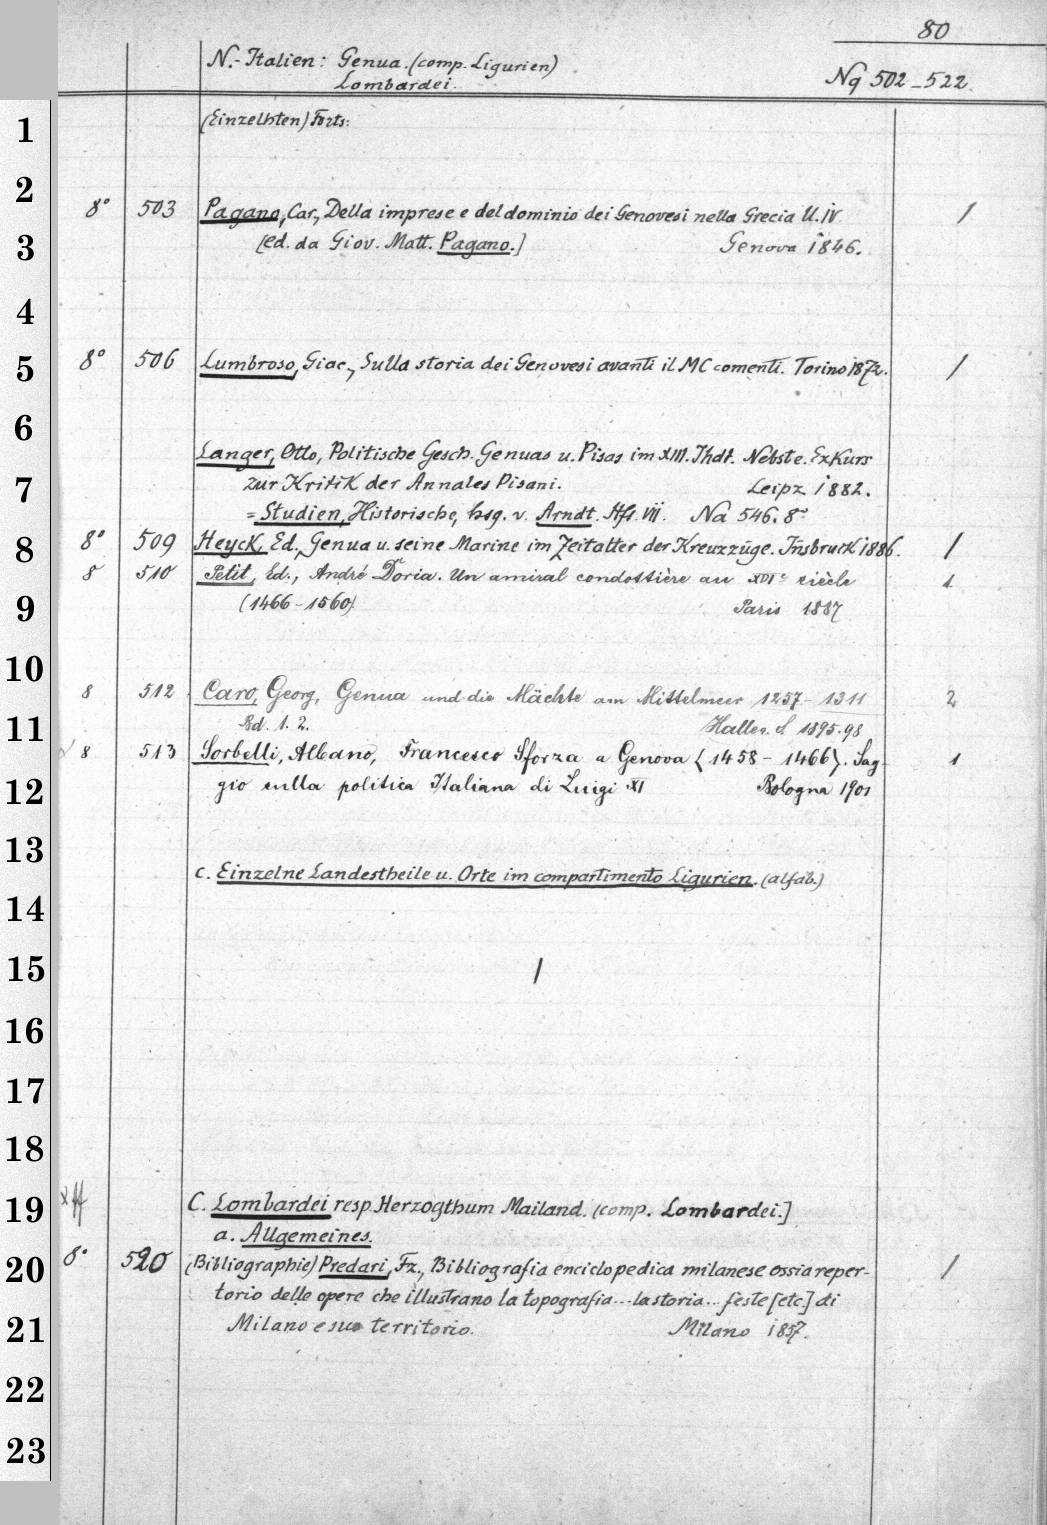 80
N.-Italien: Genua. (comp. Ligurien)
Lombardei.
Nq 502-522.
1
(Einzelhten) Forts:
2
8° 503 Pagano, Car., Della imprese e del dominio dei Genovesi nella Grecia U. IV 1
3
[ed. da Giov. Matt. Pagano.] Genova 1846.
4
5
8° 506 Lumbroso, Giac., Sulla storia dei Genovesi avanti il MC comenti. Torino 1872. 1
6
Langer, Otto, Politische Gesch. Genuas u. Pisas im XIII. Jhdt. Nebst e. Exkurs
7
zur Kritik der Annales Pisani. Leipz. 1882.
= Studien, Historische, hsg. v. Arndt. Hft. VII. Na 546. 8°
8
8° 509 Heyck, Ed., Genua u. seine Marine im Zeitalter der Kreuzzüge. Insbruck 1886. 1
8 510 Petit, Ed., André Doria. Un amiral condottière au XVIe siècle 1
9
(1466-1560) Paris 1887
10
8 512 Caro, Georg, Genua und die Mächte am Mittelmeer 1257-1311 2
11
Bd. 1. 2. Halle a. S 1895.98
8 513 Sorbelli, Albano, Francesco Sforza a Genova (1458-1466). Sag- 1
12
gio sulla politica Italiana di Luigi XI Bologna 1901
13
c. Einzelne Landestheile u. Orte im compartimento Ligurien. (alfab.)
14
15
/
16
17
18
19
C. Lombardei resp. Herzogthum Mailand. (comp. Lombardei.]
a. Allgemeines.
20
8° 520 (Bibliographie) Predari, Fz., Bibliografia enciclopedica milanese ossia reper- 1
torio delle opere che illustrano la topografia... la storia... feste [etc] di
21
Milano e suo territorio. Milano 1857.
22
23